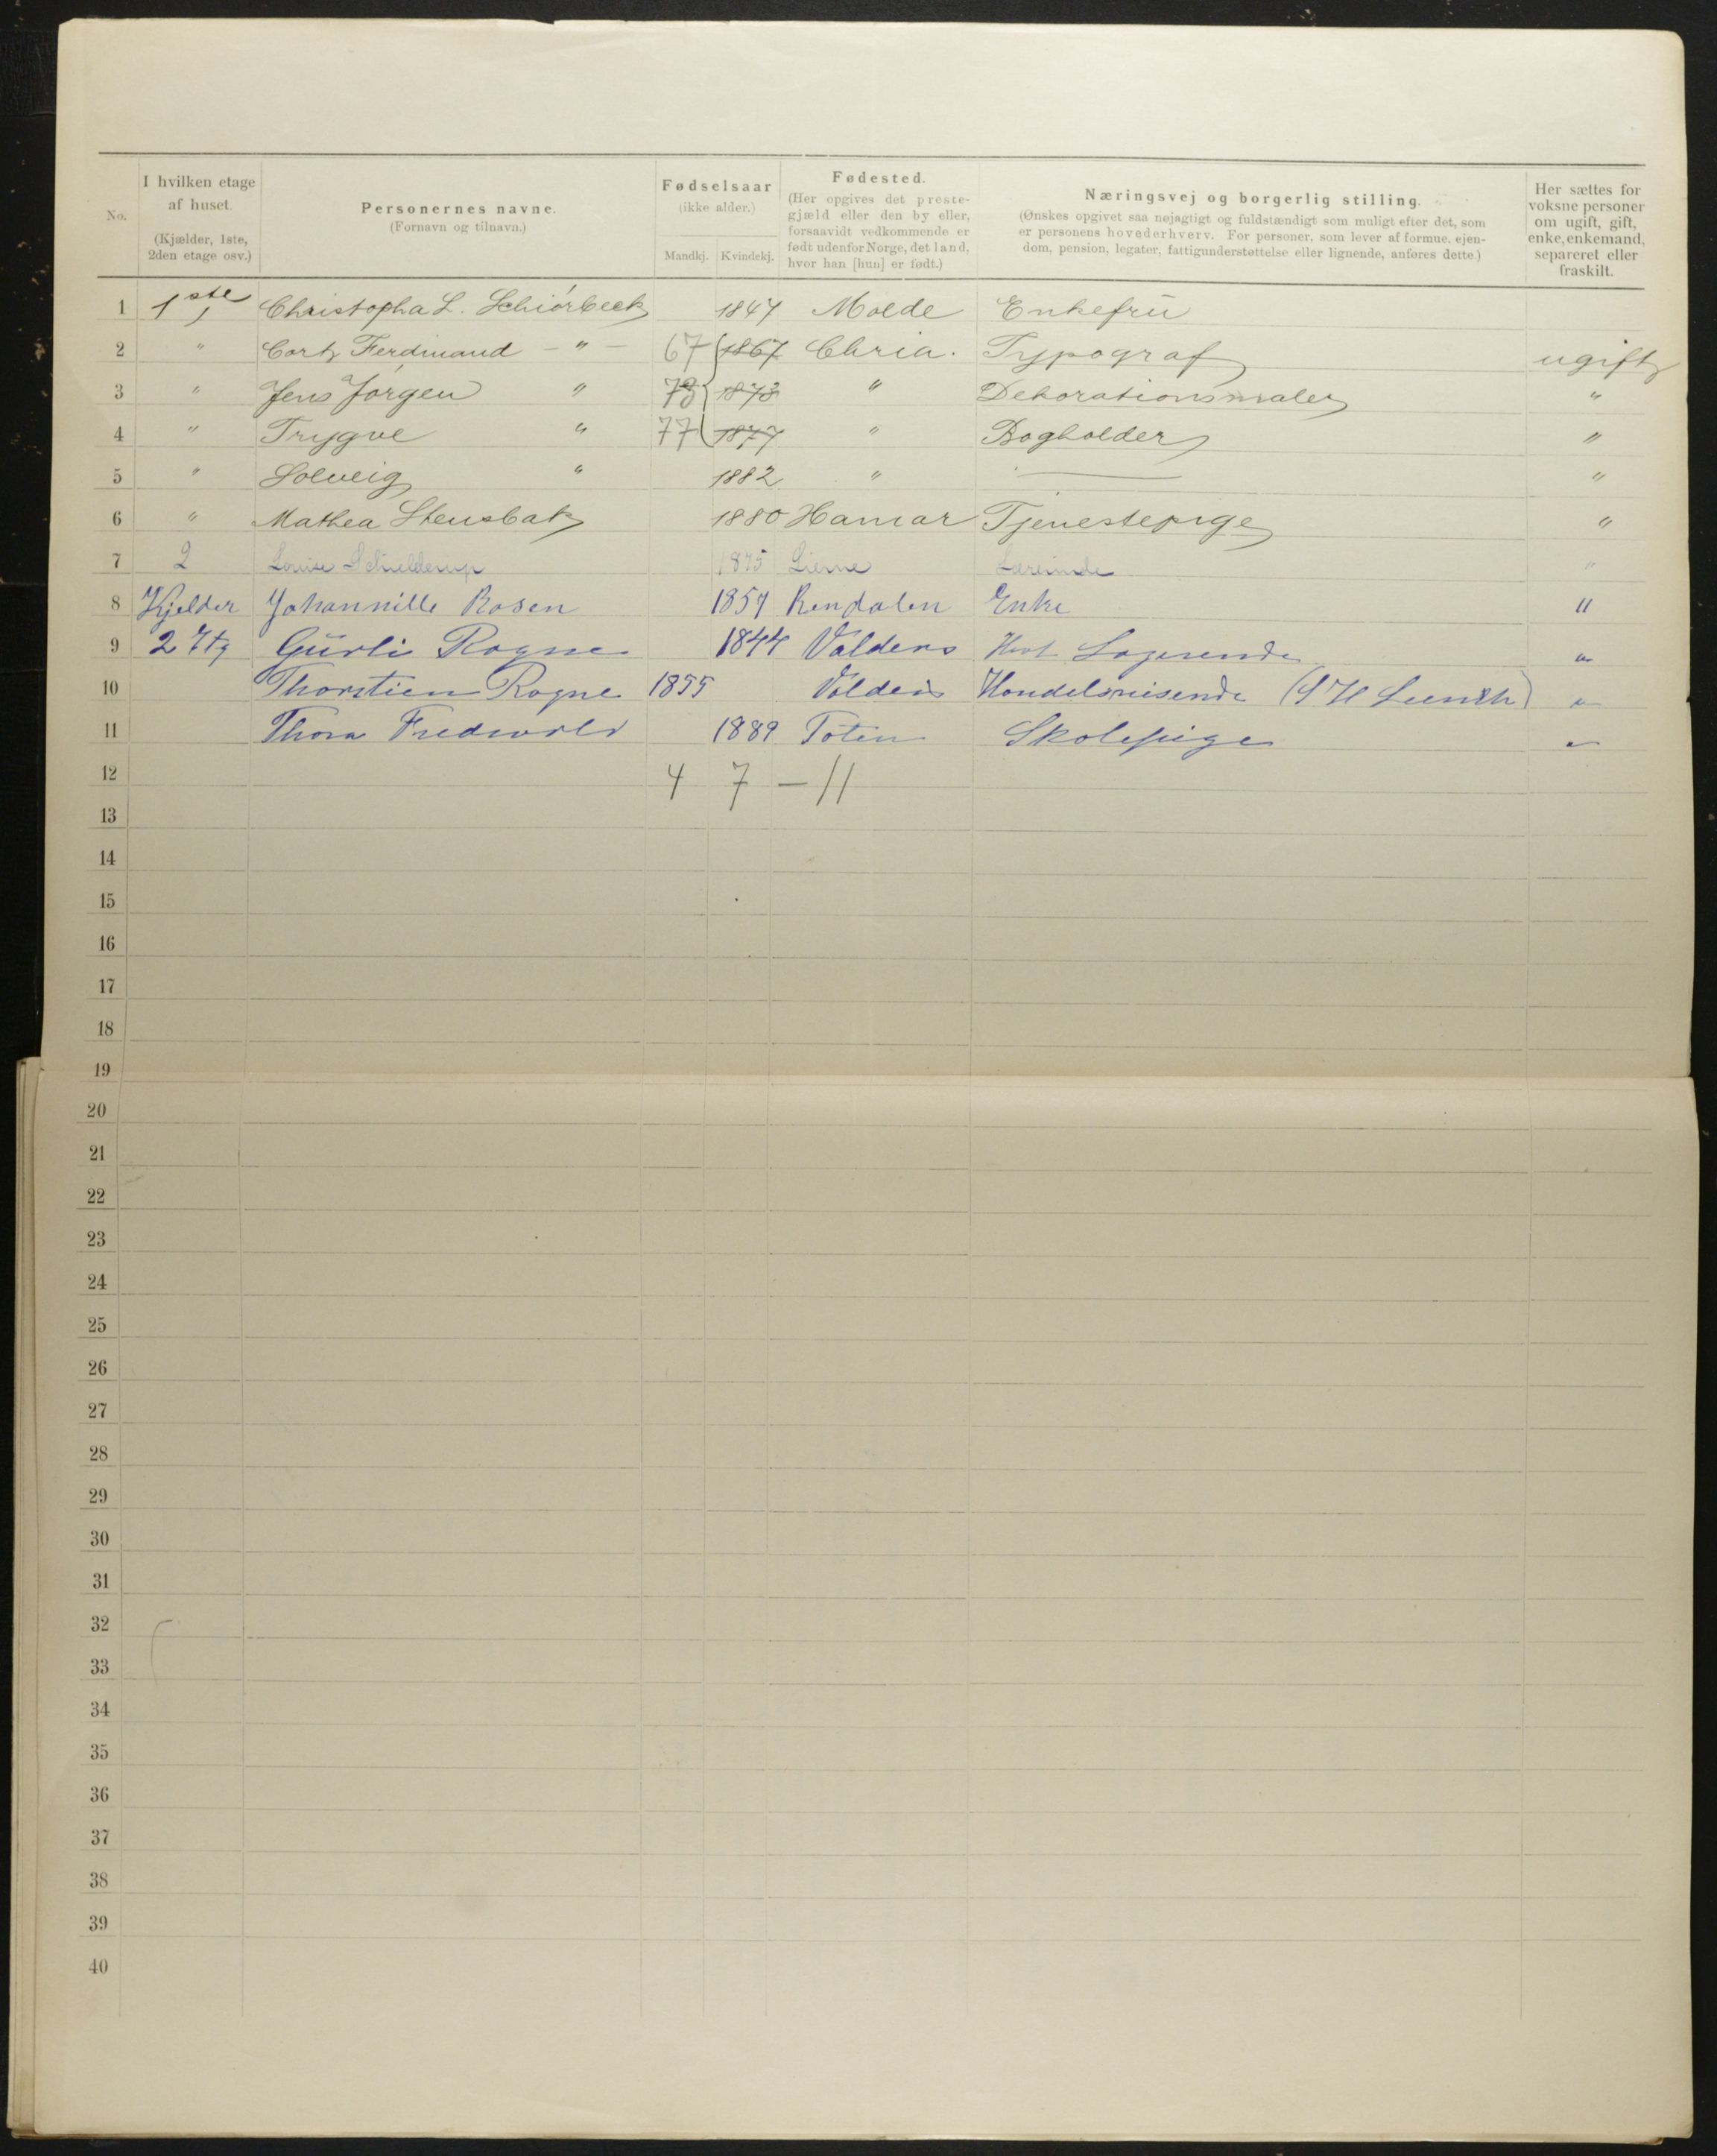 No.
I hvilken etage
af huset.
(Kjælder, 1ste,
2den etage osv.)
Personernes navne.
(Fornavn og tilnavn.)
Fødselsaar
(ikke alder.)
Mandkj. Kvindekj.
Fødested.
(Her opgives det preste-
gjæld eller den by eller,
forsaavidt vedkommende er
født udenfor Norge, det land,
hvor han [hun] er født.)
Næringsvej og borgerlig stilling.
(Ønskes opgivet saa nøjagtigt og fuldstændigt som muligt efter det, som
er personens hovederhverv. For personer, som lever af formue, ejen-
dom, pension, legater, fattigunderstøttelse eller lignende, anføres dette.)
Her sættes for
voksne personer
om ugift, gift,
enke, enkemand,
separeret eller
fraskilt.
1 1ste Christopha L. Schiørbeck 1847 Molde Enkefrü
2 " Cortz Ferdinand - " - 67 1867 Chria. Typograf ugift
3 " Jens Jørgen " 73 1873 " Dekorationsmaler "
4 " Trygve " 77 1877 " Bogholder "
5 " Solveig " 1882 " — "
6 " Mathea Stensbak 1880 Hamar Tjenestepige "
7 2 Louise Schielderup 1875 Lierne Lærerinde "
8 Kjelder Johannille Rosen 1857 Rendalen Enke "
9 2 Etg Gürli Rogne 1844 Valders Logerende "
10 Thorstien Rogne 1855 Valders Handelsreisende "
11 Thora 1889 Toten Skolepige "
12 4 7 - 11
13
14
15
16
17
18
19
20
21
22
23
24
25
26
27
28
29
30
31
32
33
34
35
36
37
38
39
40